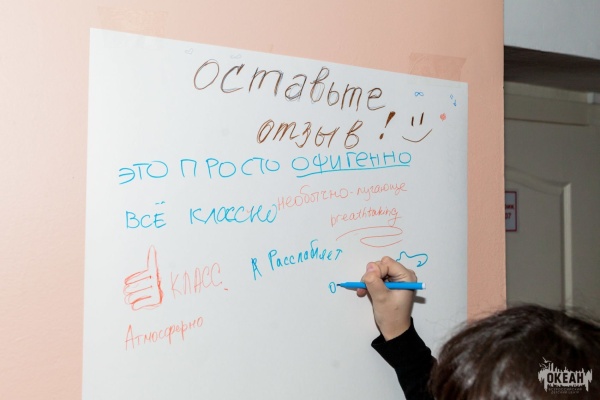 оставьте
отзыв!
ЭТО ПРОСТО ОФИГЕННО
ВСЁ КЛАССНО
необычно-пугающе
breathtaking
Расслабляет
КЛАСС.
Атмосферно
ОКЕАН